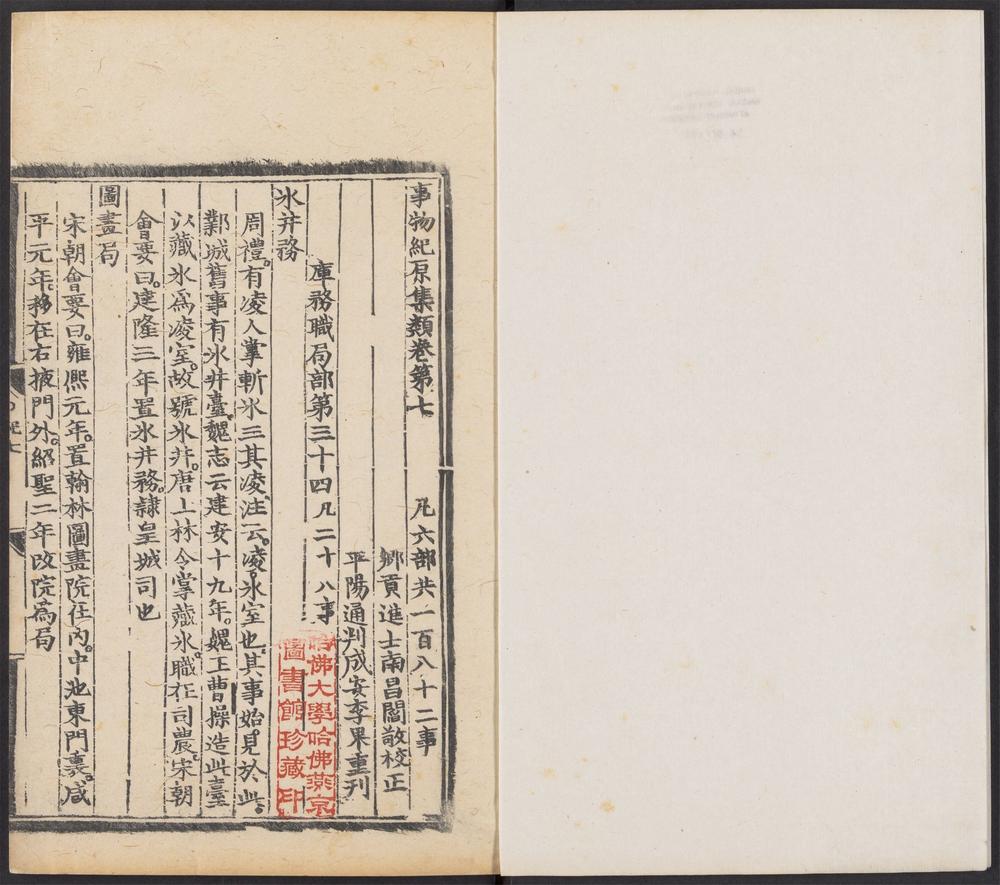 事物紀原集類卷第七　凡六部共一百八十二事
鄉貢進士南昌閻敬校正
平陽通判成安李果重刊
庫務職局部第三十四凡二十八事
哈佛大學哈佛燕京
圖書館珍藏印
氷井務
周禮。有凌人掌斬氷三其凌。注云。凌。氷室也。其事始見於此。
鄴城舊事有氷井臺。魏志云建安十九年。魏王曹操造此臺
以藏氷為凌室。故號氷井。唐上林令掌藏氷。職在司農。宋朝
會要曰。建隆三年置氷井務。隷皇城司也
圖畫局
宋朝會要曰。雍熙元年。置翰林圖畫院在內。中池東門裏。咸
平元年。移在右掖門外。紹聖二年改院為局